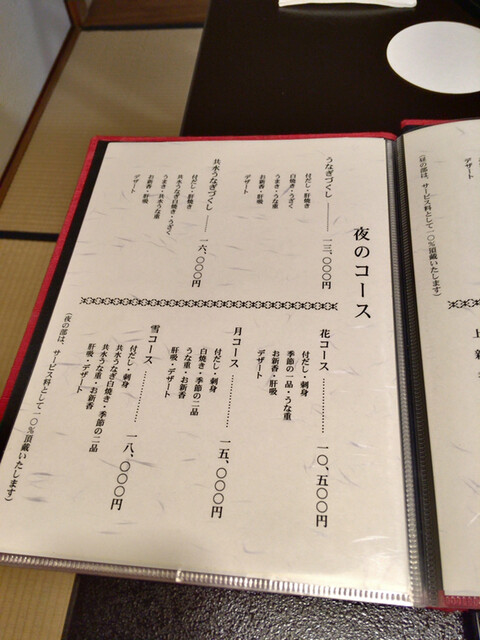 夜のコース
うなぎづくし ―― 一三、〇〇〇円
付だし・肝焼き
白焼き・うざく
うまき・うな重
お新香・肝吸
デザート
共水うなぎづくし ―― 一六、〇〇〇円
付だし・肝焼き
共水うなぎ白焼き・うざく
うまき・共水うな重
お新香・肝吸
デザート
花コース ………… 一〇、五〇〇円
付だし・刺身
季節の一品・うな重
お新香・肝吸
デザート
月コース ………… 一五、〇〇〇円
付だし・刺身
白焼き・季節の二品
うな重・お新香
肝吸・デザート
雪コース ………… 一八、〇〇〇円
付だし・刺身
共水うなぎ白焼き・季節の二品
共水うな重・お新香
肝吸・デザート
(夜の部は、サービス料として一〇%頂戴いたします)
デ
(昼の部は、サービス料として一〇%頂戴いたします)
上